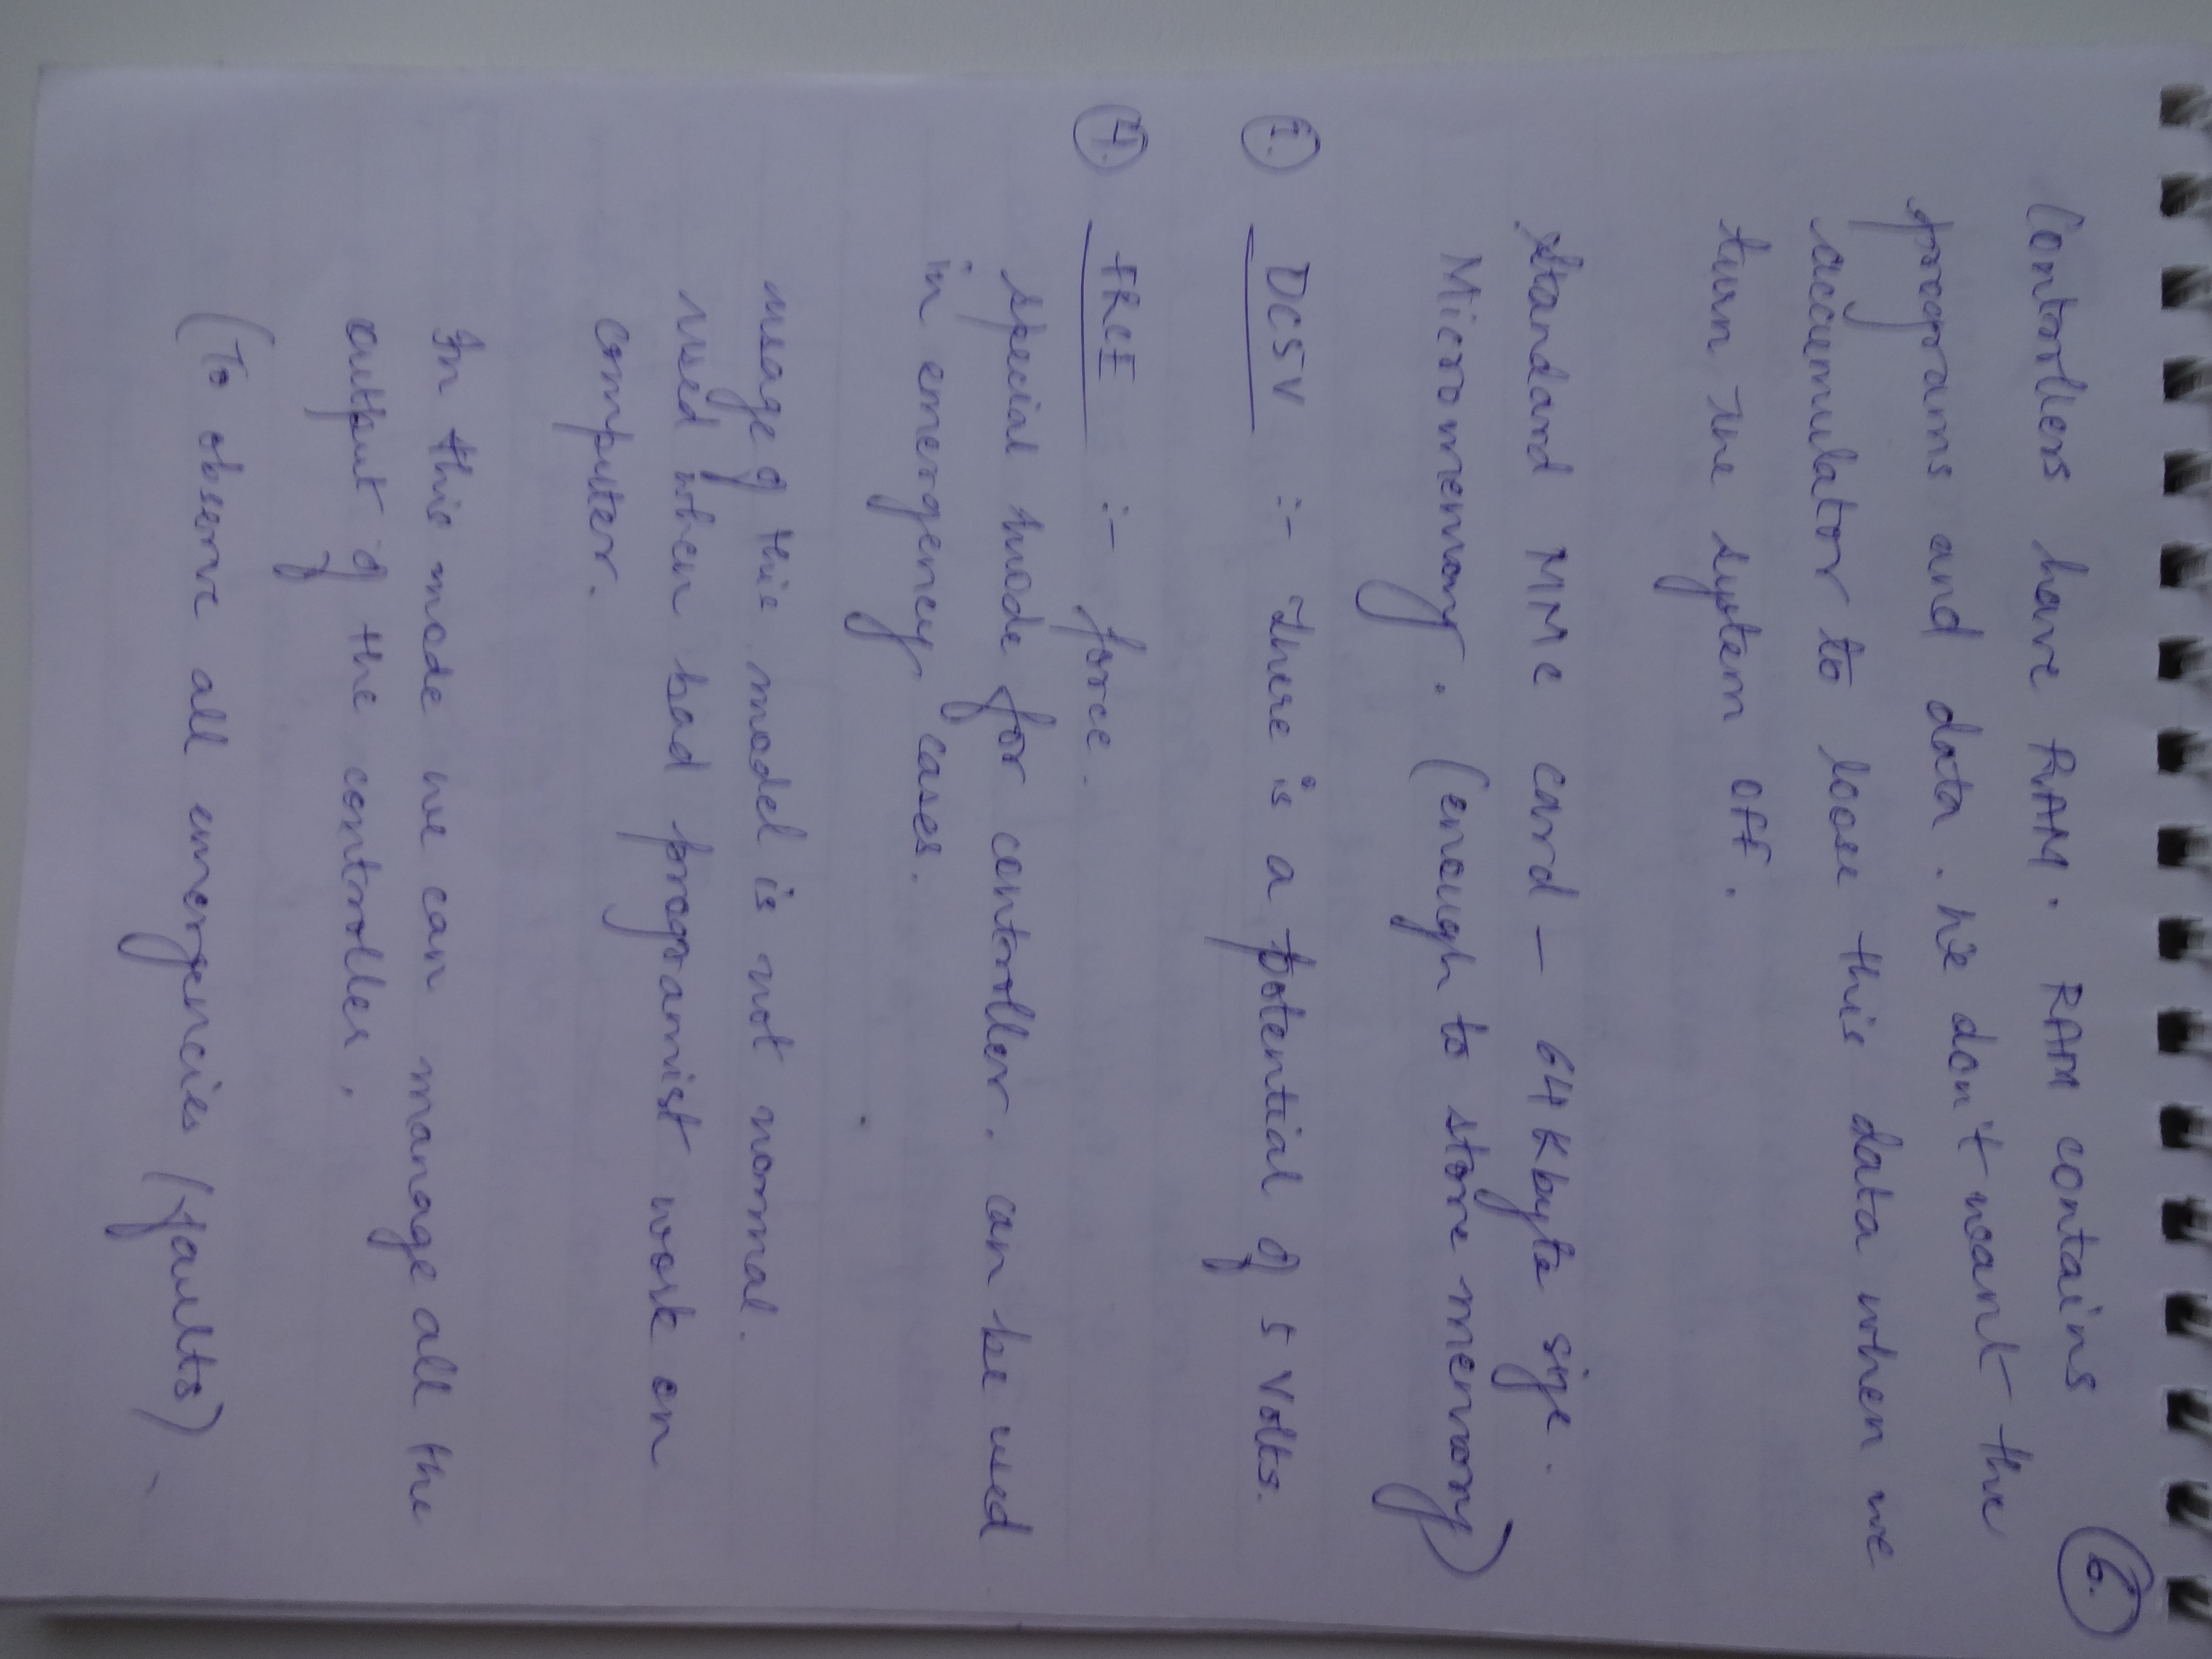 6.
Controllers have RAM. RAM contains
programs and data. We don't want the
accumulator to loose this data when we
turn the system off.
Standard MMC card - 64 Kbyte size.
Micromemory. (enough to store memory)
DC5V :- There is a potential of 5 volts.
4. FRCE :- force.
special mode for controller. can be used
in emergency cases.
usage of this model is not normal.
used when bad programist work on
computer.
In this mode we can manage all the
output of the controller.
(To observe all emergencies / faults)